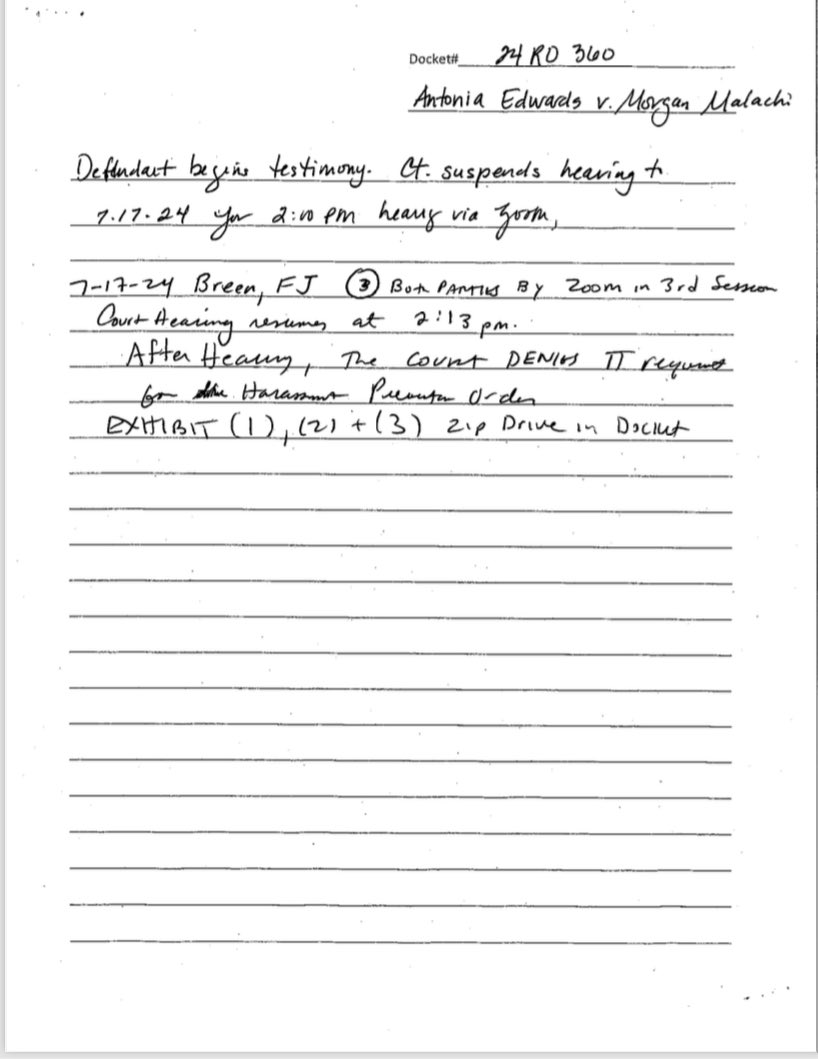 Docket# 24 RO 360
Antonia Edwards v. Morgan Malachi
Defendant begins testimony. Ct. suspends hearing to
7.17.24 for 2:00 PM hearing via zoom,
7-17-24 Breen, FJ (3) Both PARTIES By Zoom in 3rd Session
Court Hearing resumes at 2:13 pm.
After Hearing, The Court DENIES π request
for the Harassment Prevention Order
EXHIBIT (1), (2) + (3) Zip Drive in Docket